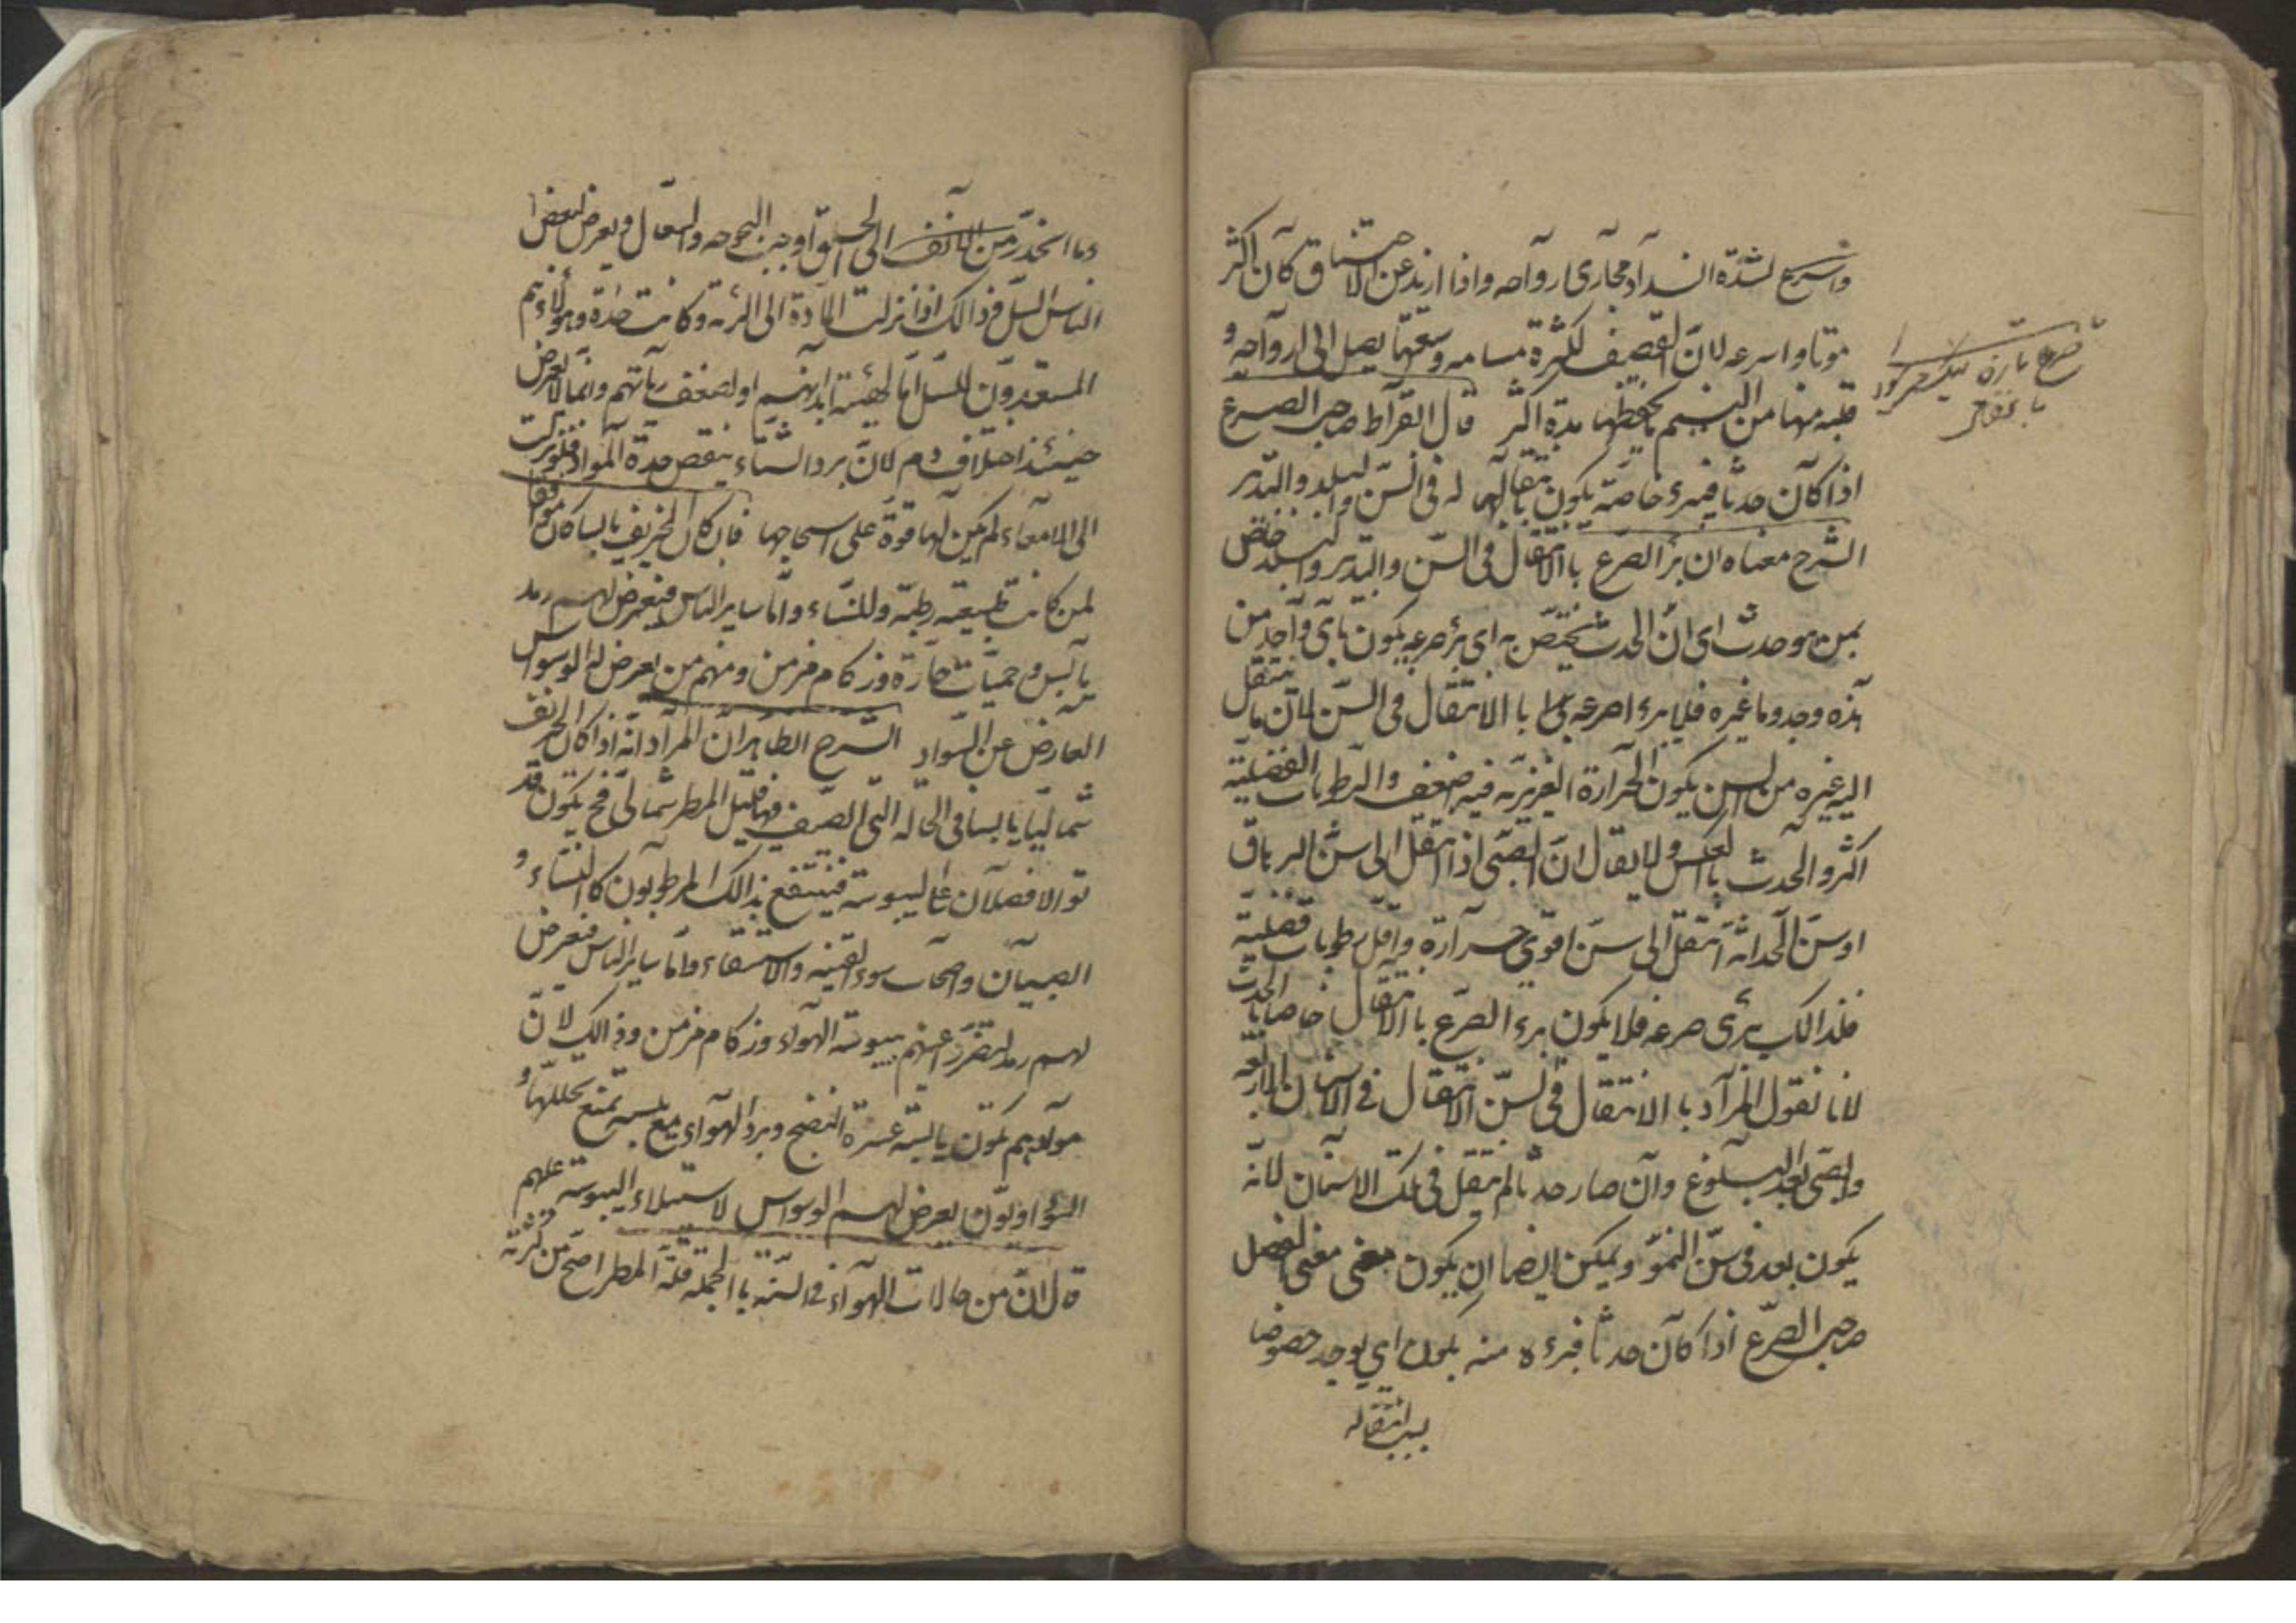 واسرع لشدّة انسداد مجاری ارواحه واذا ازید عن الاختناق کان اکثر
موتا واسرع لانّ القصیف لکثرة مسامه وسعتها یصل الی ارواحه و
قلبه منها من النسیم یحفظها مدة اکثر قال ابقراط صاحب الصرع
اذا کان حدثا فبرء خاصّة یکون بانتقاله فی السنّ والبلد والتدبیر
الشرح معناه ان برٔ الصرع باالانتقال فی السّن والتدبیر والبلد خاص
بمن هو حدث ای انّ الحدث یختصّ به ای برٔ صرعه یکون بایّ واحد من
هذه وجد وما غیره فلا یبرء صرعه باالانتقال فی السنّ لانّ ما ینتقل
الیه غیره من السن یکون الحرارة الغریزیّه فیه ضعف والرطوبات الفضلیة
اکثر والحدث باالعکس ولا یقال انّ الصبی اذا انتقل الی سنّ
او سنّ الحداثة انتقل الی سنّ اقوی حرارة واقلّ رطوبات فضلیّة
فلذالک یبرئ صرعه فلا یکون برء الصرع باالانتقال خاصا باالحدث
لانا نقول المراد باالانتقال فی السنّ الانتقال فی الاسنان الاربعة
والصبی بعد البلوغ وان صار حدثا لم ینتقل فی تلک الاسنان لانّه
یکون بعد فی سنّ النموّ ویمکن ایضا ان یکون معنی الفصل
صاحب الصرع اذا کان حدثا فبرءه منه یکون ای یوجد خصوصا
بسبب انتقاله
صرع
وما انحدر من الانف الی الحلق اوجب البحوحه والسعال ویعرض لبعض
الناس السلّ وذالک اذا نزلت المادة الی الرئة وکانت حادة وهولاء هم
المستعدون للسلّ امّا لهیئة ابدانهم او لضعف ریاتهم وانّما لا یعرض
حینئذ اختلاف دم لانّ برد الشتاء ینقص حدة المواد فلو نزلت
الی الامعاء لم یکن لها قوة علی اسحاجها فان کان الخریف یابسا کان موافقا
لمن کانت طبیعته رطبة وللنساء وامّا سایر الناس فیعرض لهم رمد
یابس وحمیات حارّة وزکام مزمن ومنهم من یعرض له الوسواس
العارض عن السّواد الشرح الظاهر انّ المراد انّه اذا کان الخریف
شمالیّا یابسا فی الحاله التی الصیف فیها قلیل المطر شمالی فح یکون قد
توالا فصلان علی الیبوسة فینتفع بذالک المرطوبون کاالنساء و
الصبیان واصحاب سوء القنیه والاستسقاء وامّا سایر الناس فیعرض
لهم رمد لتضرر اعینهم بیبوسة الهواء وزکام مزمن وذالک لانّ
موادهم تکون یابسة عسرة النضج وبرد الهواء مع یبسه تمنع تحللها و
السوداویّون یعرض لهم الوسواس لاستیلاء الیبوسة علیهم
قال انّ من حالات الهواء فی السّنة باالجملة قلّة المطر اصحّ من کثرته